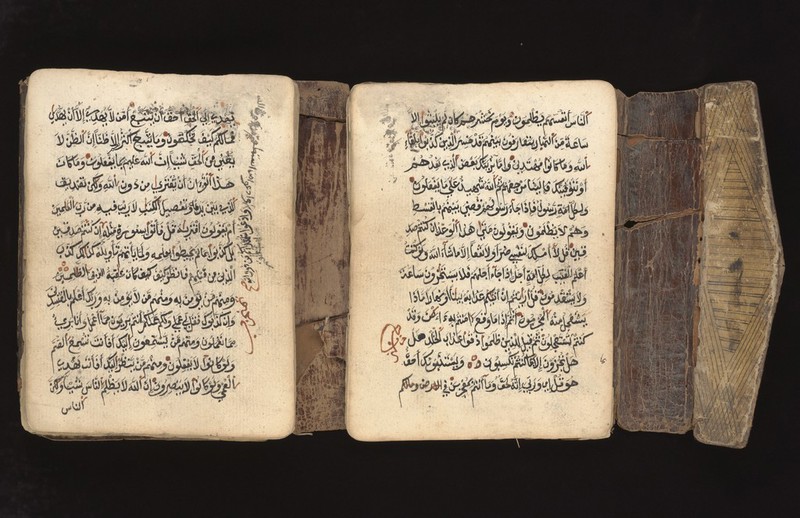 يهدي الى الحق احق ان يتبع امن لا يهدي الا ان يهدى
فما لكم كيف تحكمون وما يتبع اكثرهم الا ظنا ان الظن لا
يغني من الحق شيئا ان الله عليم بما يفعلون وما كان
هذا القرآن ان يفترى من دون الله ولكن تصديق
الذي بين يديه وتفصيل الكتب لا ريب فيه من رب العلمين
ام يقولون افتريه قل فأتوا بسورة مثله ان كنتم صدقين
بل كذبوا بما لم يحيطوا بعلمه ولما يأتهم تأويله كذلك كذب
الذين من قبلهم فانظر كيف كان عقبة الظلمين
ومنهم من يؤمن به ومنهم من لا يؤمن به وربك اعلم بالمفسدين
وان كذبوك فقل لي عملي ولكم عملكم انتم بريئون مما اعمل وانا بريء
مما تعملون ومنهم من يستمعون اليك افانت تسمع الصم
ولو كانوا لا يعقلون ومنهم من ينظر اليك افانت تهدي
العمي ولو كانوا لا يبصرون ان الله لا يظلم الناس شيئا ولكن
الناس
الناس انفسهم يظلمون ويوم نحشرهم كان لم يلبثوا الا
ساعة من النهار يتعارفون بينهم قد خسر الذين كذبوا بلقاء
الله وما كانوا مهتدين واما نرينك بعض الذي نعدهم
او نتوفينك فالينا مرجعهم ثم الله شهيد على ما يفعلون
ولكل امة رسول فاذا جاء رسولهم قضي بينهم بالقسط
وهم لا يظلمون ويقولون متى هذا الوعد ان كنتم صد
قين قل لا املك لنفسي ضرا ولا نفعا الا ما شاء الله
لكل امة اجل اذا جاء اجلهم فلا يستاخرون ساعة
ولا يستقدمون قل ارايتم ان اتيكم عذابه بياتا او نهارا ماذا
يستعجل منه المجرمون اثم اذا ما وقع امنتم به الئن وقد
كنتم به تستعجلون ثم قيل للذين ظلموا ذوقوا عذاب الخلد هل
هل تجزون الا بما كنتم تكسبون ويستنبئونك احق
هو قل اي وربي انه لحق وما انتم بمعجزين في الارض وما لكم